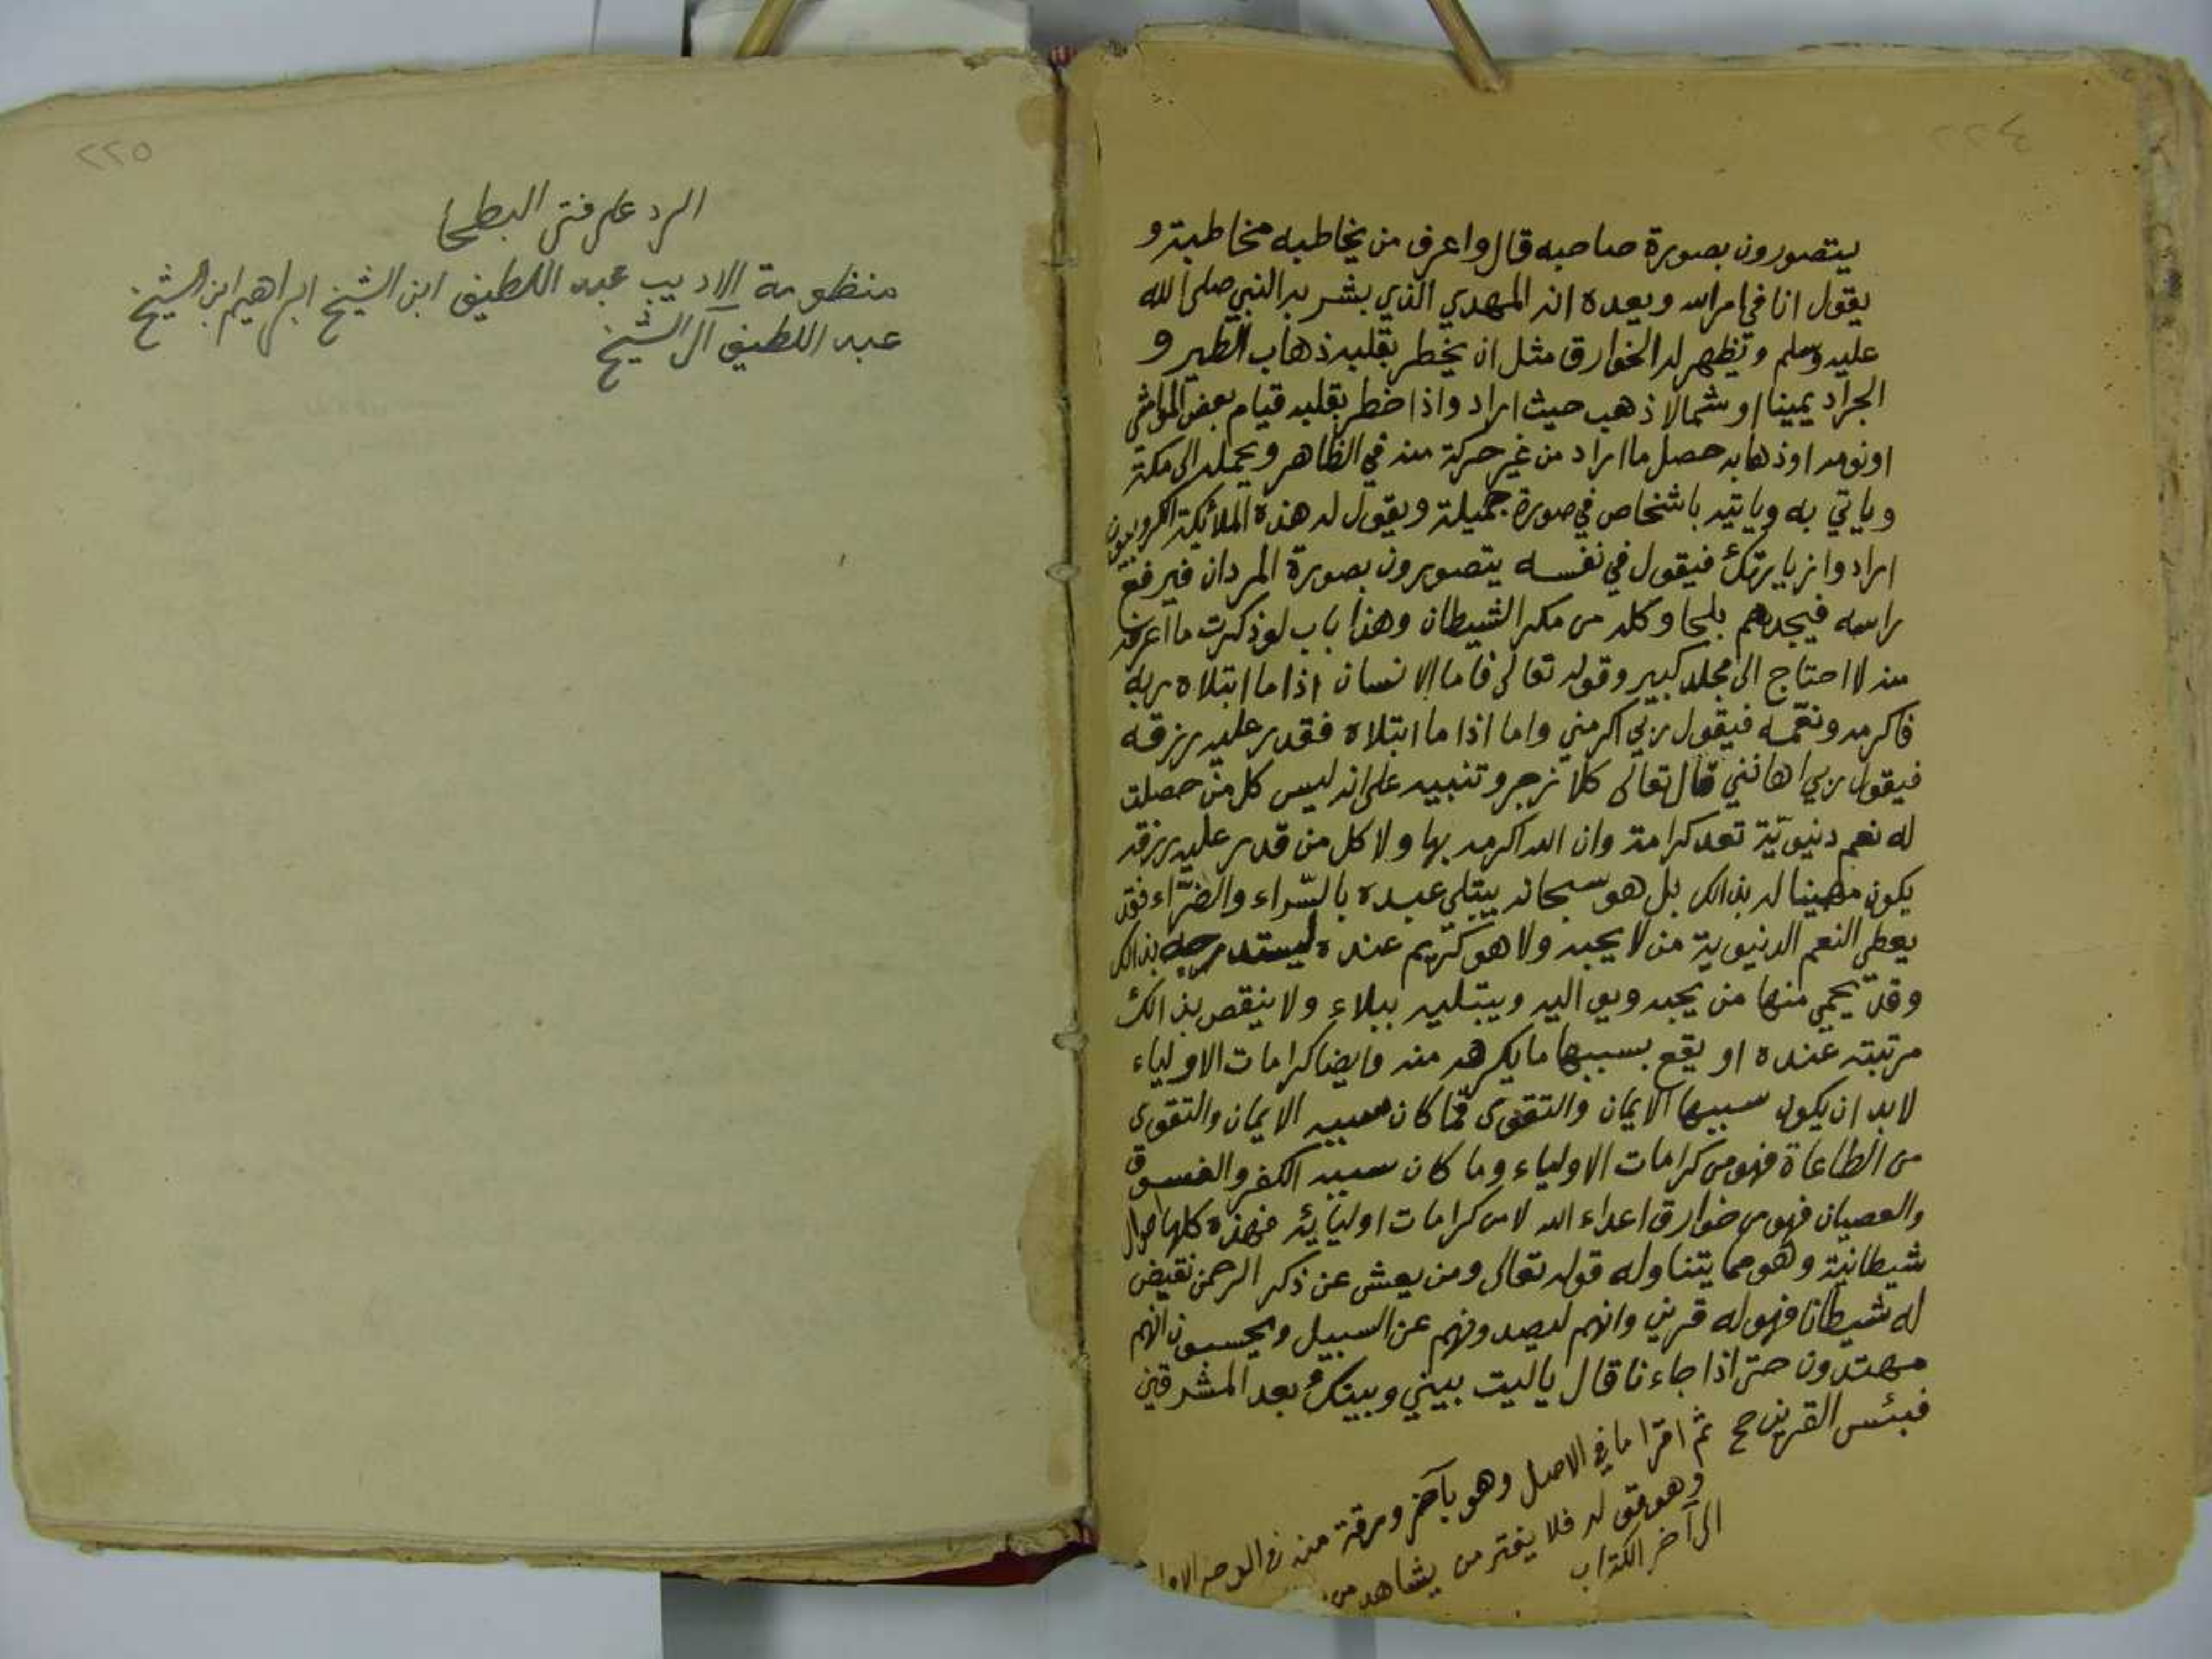 ٢٢٤
يتصورون بصورة صاحبه قال واعرف من يخاطبه مخاطبة و
يقول انا في امر الله ويعده انه المهدي الذي بشر به النبي صلى الله
عليه وسلم وتظهر له الخوارق مثل ان يخطر بقلبه ذهاب الطير و
الجراد يمينا او شمالا ذهب حيث اراد واذا خطر بقلبه قيام بعض المواشي
او نومه او ذهابه حصل ما اراد من غير حركة منه في الظاهر ويحمله الى مكة
وياتي به وياتيه باشخاص في صورة جميلة ويقول له هذه الملائكة الكروبيون
ارادوا زيارتك فيقول في نفسه يتصورون بصورة المردان فيرفع
راسه فيجدهم بلحا وكله من مكر الشيطان وهذا باب لو ذكرت ما اعرفه
منه لا احتاج الى مجلد كبير وقوله تعالى فاما الانسان اذا ما ابتلاه ربه
فاكرمه ونعمه فيقول ربي اكرمني واما اذا ما ابتلاه فقدر عليه رزقه
فيقول ربي اهانني قال تعالى كلا زجر وتنبيه على انه ليس كل من حصلت
له نعم دنيويّة تعد كرامة وان الله اكرمه بها ولا كل من قدر عليه رزقه
يكون مهينا له بذالك بل هو سبحانه يبتلي عبده بالسّراء والضّراء فقد
يعطي النعم الدنيوية من لا يحبه ولا هو كريم عنده ليستدرجه بذالك
وقد يحمي منها من يحبه ويواليه ويبتليه ببلاء ولا ينقص بذالك
مرتبته عنده او يقع بسببها ما يكرهه منه وايضا كرامات الاولياء
لا بد ان يكون سببها الايمان والتقوى فما كان سببه الايمان والتقوى
من الطاعاة فهو من كرامات الاولياء وما كان سببه الكفر والفسوق
والعصيان فهو من خوارق اعداء الله لا من كرامات اوليائه فهذه كلها احوال
شيطانية وهو مما يتناوله قوله تعالى ومن يعش عن ذكر الرحمن نقيض
له شيطانا فهو له قرين وانهم ليصدونهم عن السبيل ويحسبون انهم
مهتدون حتى اذا جاءنا قال ياليت بيني وبينك بعد المشرقين
فبئس القرين صح ثم اقرا ما في الاصل وهو بآخر ورقة منه في الوجه الاول
وهو قوله فلا يغتر من يشاهد من
الى آخر الكتاب
٢٢٥
الرد على فتى البطحا
منظومة الاديب عبد اللطيف ابن الشيخ ابراهيم ابن الشيخ
عبد اللطيف آل الشيخ